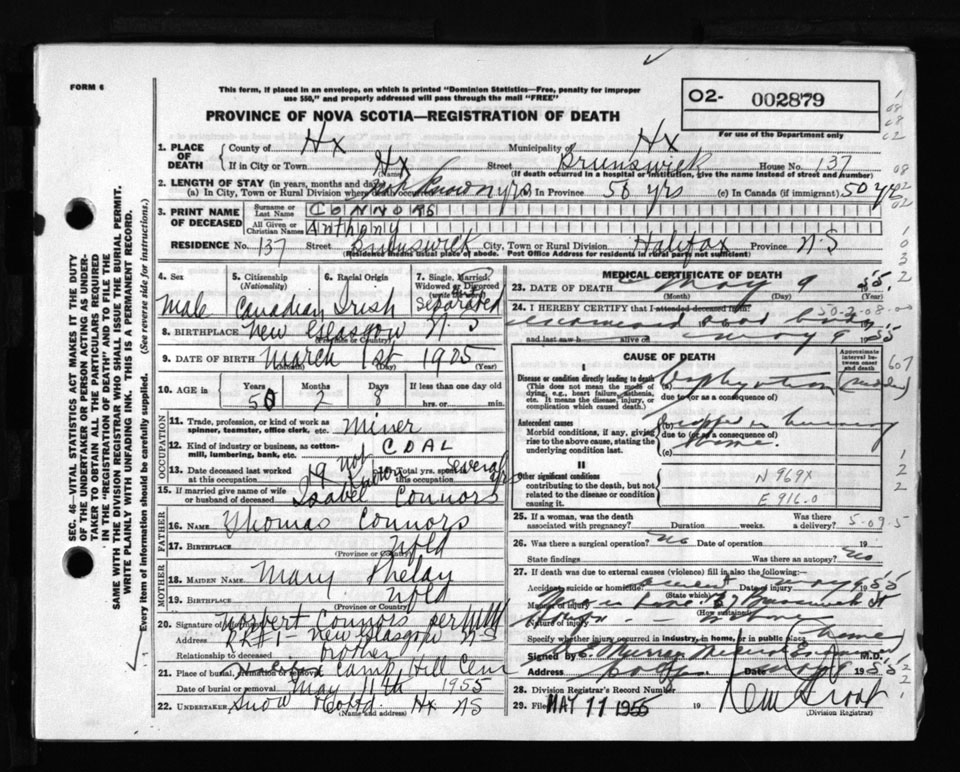 FORM 6
This form, if placed in an envelope, on which is printed "Dominion Statistics—Free, penalty for improper
use $50," and properly addressed will pass through the mail "FREE"
PROVINCE OF NOVA SCOTIA—REGISTRATION OF DEATH
O2- 002879
For use of the Department only
SEC. 46—VITAL STATISTICS ACT MAKES IT THE DUTY
OF THE UNDERTAKER OR PERSON ACTING AS UNDER-
TAKER TO OBTAIN ALL THE PARTICULARS REQUIRED
IN THE "REGISTRATION OF DEATH" AND TO FILE THE
SAME WITH THE DIVISION REGISTRAR WHO SHALL ISSUE THE BURIAL PERMIT.
WRITE PLAINLY WITH UNFADING INK. THIS IS A PERMANENT RECORD.
Every item of information should be carefully supplied. (See reverse side for instructions.)
1. PLACE OF DEATH
County of Hx Municipality of Hx
If in City or Town Hx (Name) Street Brunswick House No. 137
(If death occurred in a hospital or institution, give the name instead of street and number)
2. LENGTH OF STAY (in years, months and days)
(a) In City, Town or Rural Division where death occurred not known yrs (b) In Province 50 yrs (c) In Canada (if immigrant) 50 yrs
3. PRINT NAME OF DECEASED
Surname or Last Name CONNORS
All Given or Christian Names Anthony
RESIDENCE No. 137 Street Brunswick City, Town or Rural Division Halifax Province N.S
(Residence means usual place of abode. Post Office Address for residents in rural parts not sufficient)
4. Sex Male
5. Citizenship (Nationality) Canadian
6. Racial Origin Irish
7. Single, Married, Widowed or Divorced Separated
8. BIRTHPLACE New Glasgow N.S
(Province or Country)
9. DATE OF BIRTH March 1st 1905
(Month) (Day) (Year)
10. AGE in Years 50 Months 2 Days 8 If less than one day old hrs. or min.
OCCUPATION
11. Trade, profession, or kind of work as spinner, teamster, office clerk, etc. Miner
12. Kind of industry or business, as cotton-mill, lumbering, bank, etc. COAL
13. Date deceased last worked at this occupation 19 not known Total yrs. spent in this occupation Several yrs
15. If married give name of wife or husband of deceased Isabel Connors
FATHER
16. NAME Thomas Connors
17. BIRTHPLACE Nfld
(Province or Country)
MOTHER
18. MAIDEN NAME Mary Phelay
19. BIRTHPLACE Nfld
(Province or Country)
20. Signature of Connors per
Address RR#1 - New Glasgow N.S
Relationship to deceased brother
21. Place of burial, cremation or removal Camp Hill Cem
Date of burial or removal May 11th 1955
22. UNDERTAKER Snow & Co Ltd. Hx NS
(Name and address)
MEDICAL CERTIFICATE OF DEATH
23. DATE OF DEATH May 9 1955
(Month) (Day) (Year)
24. I HEREBY CERTIFY that I attended deceased from
and last saw h alive on May 9 1955
CAUSE OF DEATH
Approximate interval between onset and death
I
Disease or condition directly leading to death
(This does not mean the mode of dying, e.g., heart failure, asthenia, etc. It means the disease, injury, or complication which caused death.)
(a) Asphyxiation
due to (or as a consequence of)
Antecedent causes
Morbid conditions, if any, giving rise to the above cause, stating the underlying condition last.
(b) in burning
due to (or as a consequence of)
(c) home.
II
Other significant conditions
contributing to the death, but not related to the disease or condition causing it.
N 969X
E 916.0
25. If a woman, was the death associated with pregnancy? Duration weeks. Was there a delivery?
26. Was there a surgical operation? No Date of operation 19
State findings Was there an autopsy? No
27. If death was due to external causes (violence) fill in also the following:
Accident, suicide or homicide? accident Date of injury May 9 1955
(State which)
Manner of injury Brunswick St
(How sustained)
Nature of injury
Specify whether injury occurred in industry, in home, or in public place. (home)
Signed by Murray Medical Examiner M.D.
Address Date 1955
28. Division Registrar's Record Number
29. Filed MAY 11 1955 19
(Division Registrar)